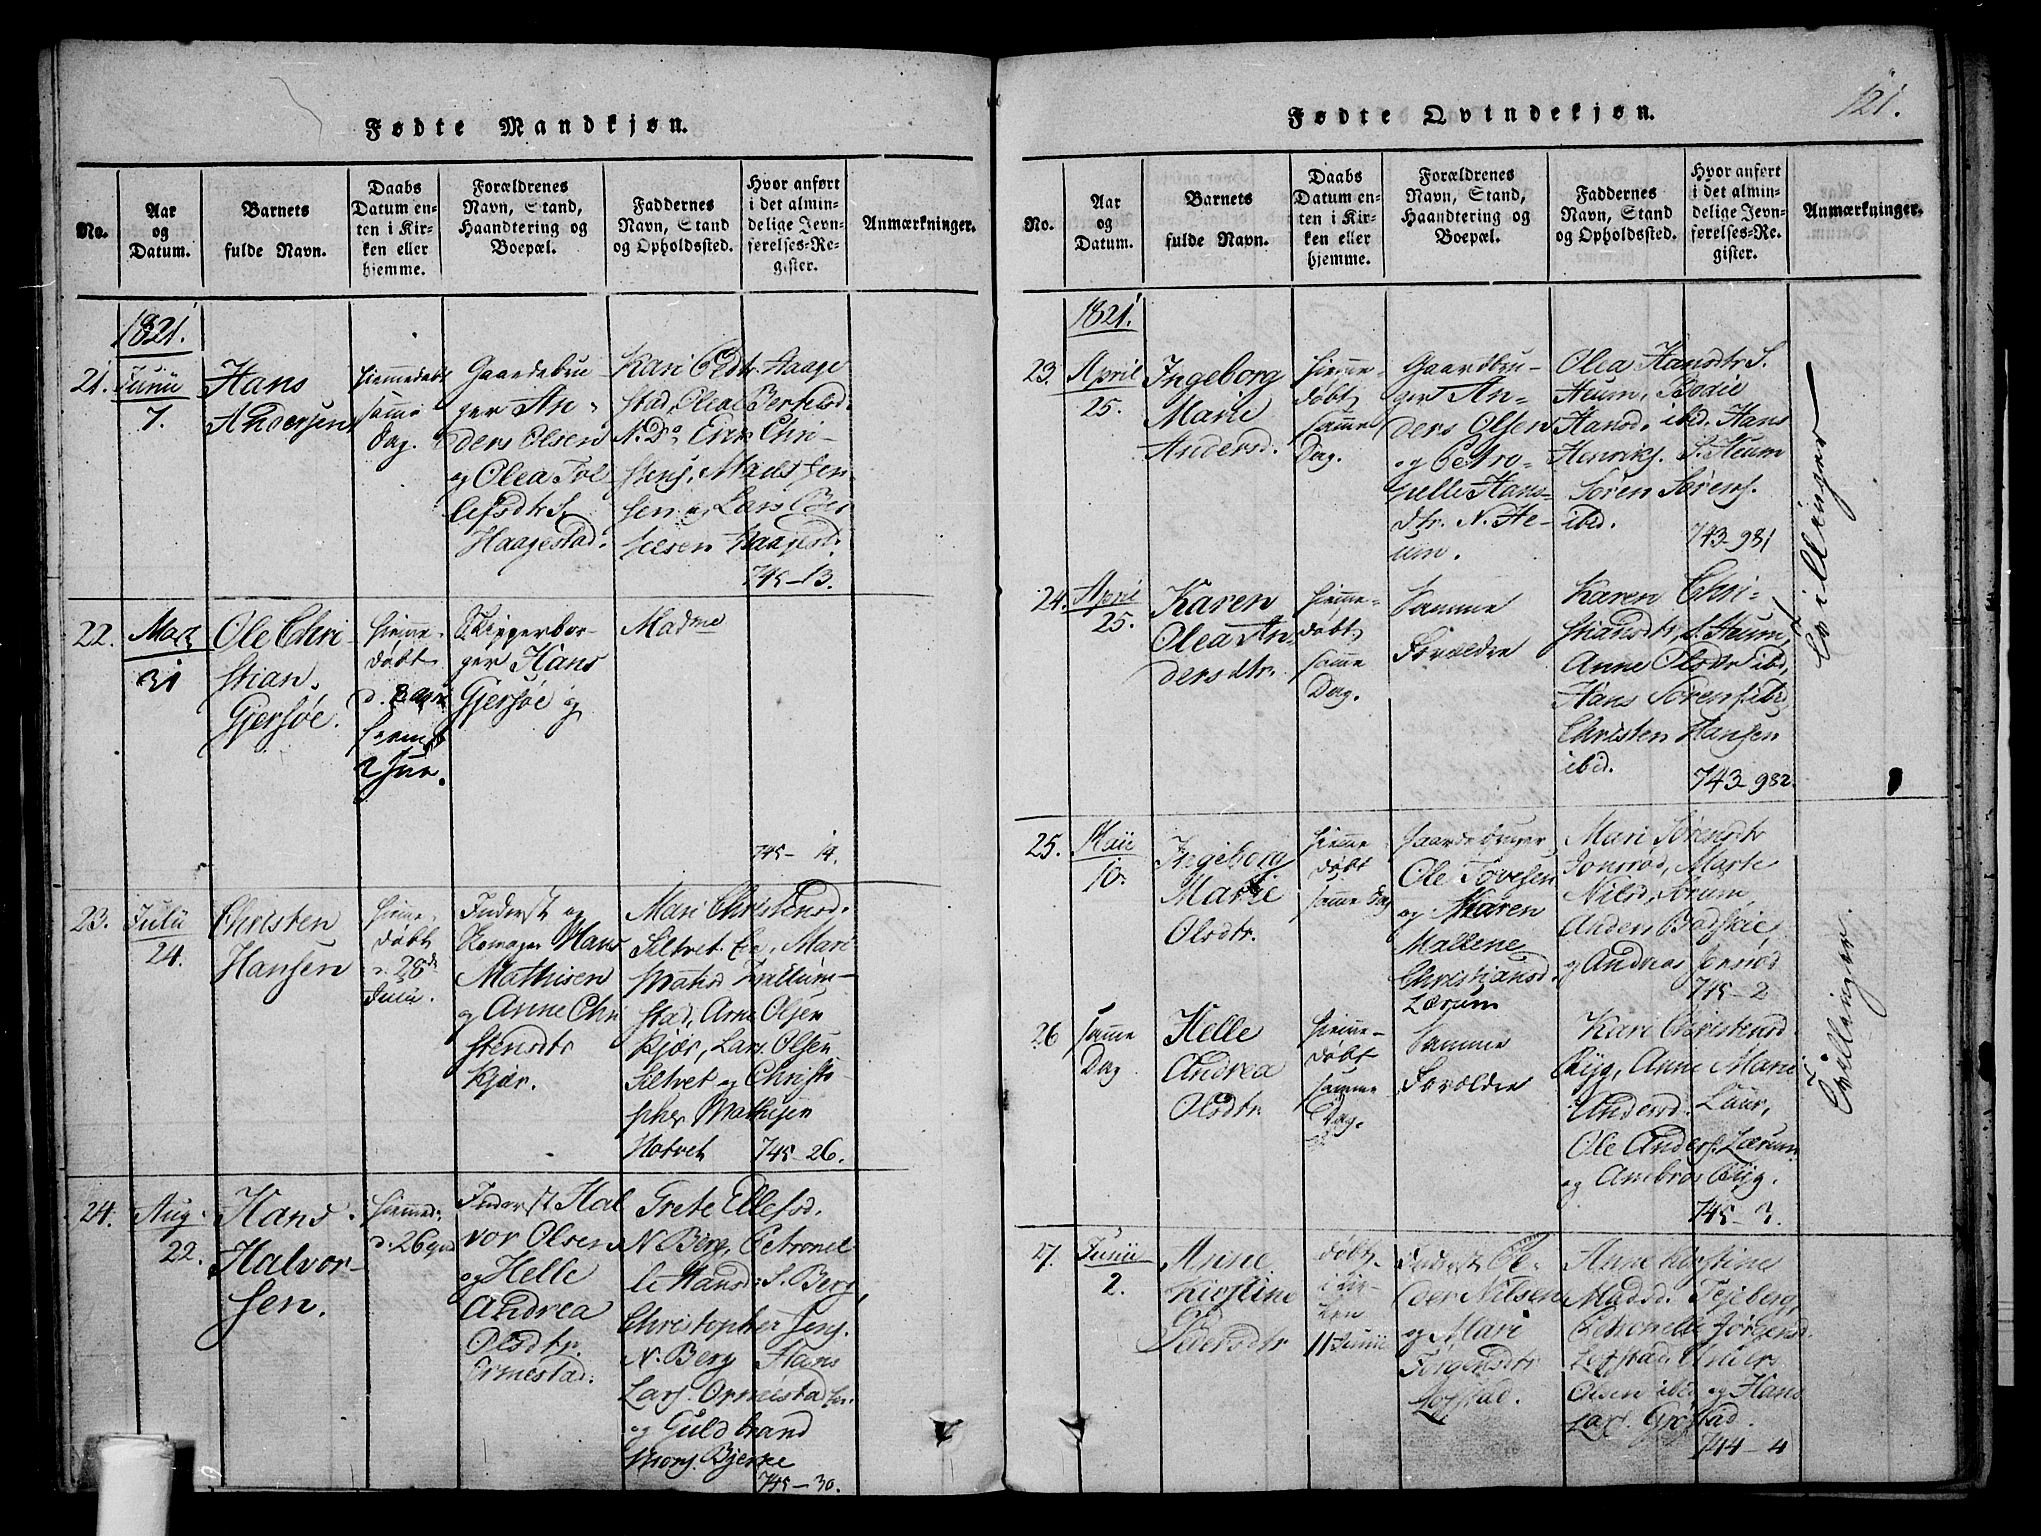 Fødte Mandkjøn.
No.
Aar
og
Datum.
Barnets
fulde Navn.
Daabs
Datum en-
ten i Kir-
ken eller
hjemme.
Forældrenes
Navn, Stand,
Haandtering og
Boepæl.
Faddernes
Navn, Stand
og Opholdssted.
Hvor anført
i det almin-
delige Jevn-
førelses-Re-
gister.
Anmærkninger.
1821.
21.
Junii
7.
Hans
Andersen
Hiemmedøbt
samme
Dag.
Gaardebru
ger An-
ders Olsen
og Olea Tol
lefsdtr S.
Haagestad.
Kari Pedtr. Haage
stad, Olea Bertelsd.
N. Do Erik Chri-
stens, Mads Jen
sen og Lars Ber
telsen Haagesd.
745-13.
22.
Mart
31
Ole Chri
stian
Gjersøe.
Hiemme-
døbt
Skipperbor-
ger Hans
Gjersøe og
Madme
745- 14.
23.
Julii
24.
Christen
Hansen
Hiemme-
døbt
28de
Julii.
Inderst og
Hans
Mathisen
og Anne Chri
stensdtr
Kjær.
Mari Christensd.
Siltvet Mari
Matisd Hallum-
stad, Arne Olsen
Kjær, Lars Olsen
Siltvet og Christo-
pher Mathisen
Hotvet 745-26.
24.
Aug.
22.
Hans
Halvor-
sen.
Hiemmed.
d. 26
Inderst Hal
vor Olsen
og Helle
Andrea
Olsdtr.
Ormestad.
Grete Ellefsd.
N Berg, Petronel
le Hansd: S. Berg,
Christopher Jens.
N. Berg Hans
Lars. Ormestad
og Guldbrand
Thors. Bjerke
745-30.
Fødte Qvindekjøn.
121.
No.
Aar
og
Datum.
Barnets
fulde Navn.
Daabs
Datum en-
ten i Kir-
ken eller
hjemme.
Forældrenes
Navn, Stand,
Haandtering og
Boepæl.
Faddernes
Navn, Stand
og Opholdssted.
Hvor anført
i det almin-
delige Jevn-
førelses-Re-
gister.
Anmærkninger.
1821.
23.
April
25.
Ingeborg
Marie
Andersd.
Hiemme-
døbt
samme
Dag.
Gaardbru-
ger An-
ders Olsen
og Petro-
nelle Hans-
dtr. N. He-
um.
Olea Hansdtr S.
Heum, Bodil
Hansd. ibid. Hans
Henriks. S. Heum
Søren Sørens.
ibid.
743-981
Tvillinger
24.
April
25.
Karen
Olea An
dersdtr.
Hiemme-
døbt
samme
Dag.
Samme
Forældre
Karen Chri-
stiansdtr, S. Heum,
Anne Olsdtr ibid,
Hans Sørens ibid,
Christen Hansen
ibid.
743-982.
25.
Maii
10.
Ingeborg
Marie
Olsdtr.
Hiemme
døbt
samme Dag
Gaardbruger
Ole Tovesen
og Maren
Mallene
Christiansd.
Lærum
Mari Sørensdtr
Jonsrød, Marte
Nilsd. Sørum,
Anders
og Andreas Jonsrød
745-2
Tvillinger.
26
samme
Dag
Helle
Andrea
Olsdtr
Hiemme-
døbt
samme
Dag.
Samme
Forældre
Kari Christensd.
Byg, Anne Marie
Andersd.
Ole Anders. Lærum
og Ambros Byg.
745-3.
27.
Junii
2.
Anne
Kirstine
Pedersdtr
døbt
i Kir-
ken
11 Junii
Inderst Pe-
der Nilsen
og Mari
Jørgensdtr
Løfstad.
Anne Kirstine
Madsd. Tejeberg,
Petronelle Jørgensd.
Løfstad, Anders
Olsen ibid og Hans
Lars.
744-4